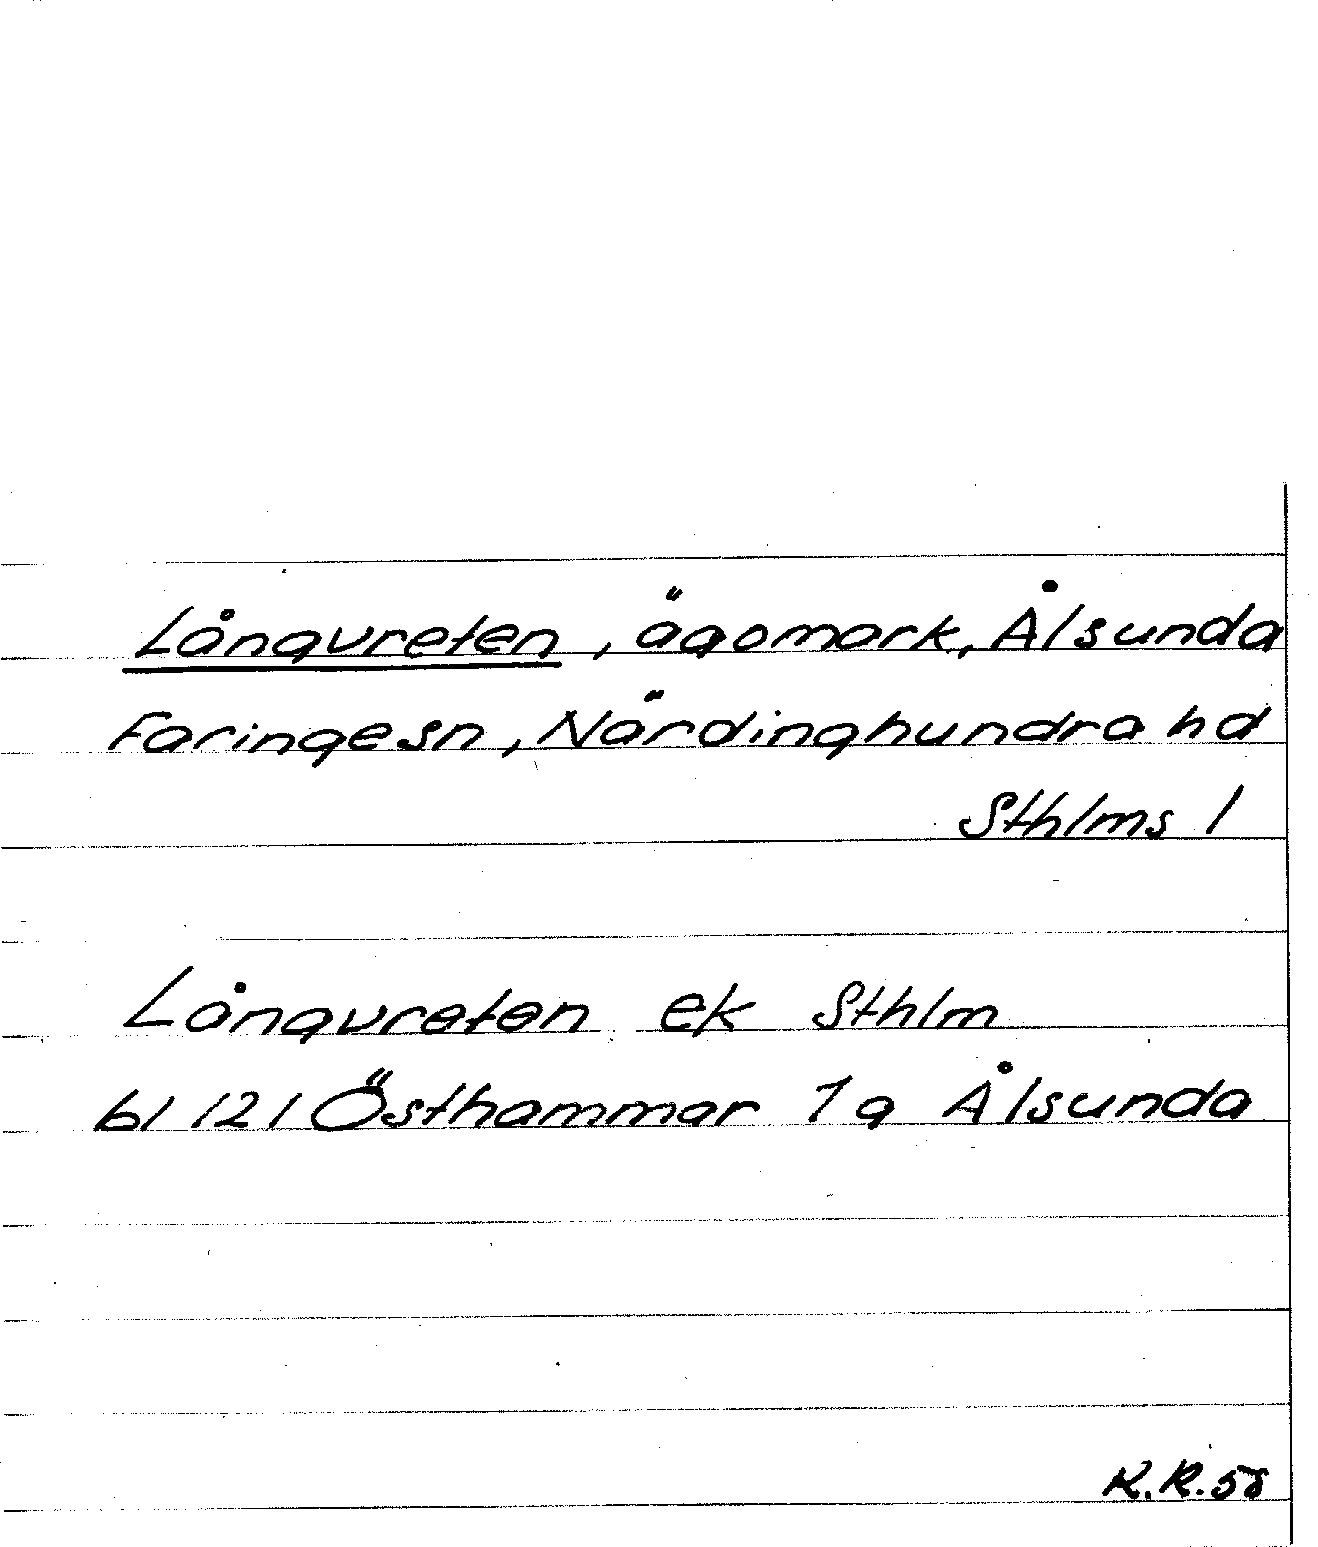 Långvreten, ägomark, Ålsunda
Faringe sn, Närdinghundra hd
Sthlms l
Långvreten ek Sthlm
bl 121 Östhammar 7 g Ålsunda
R.R. 58